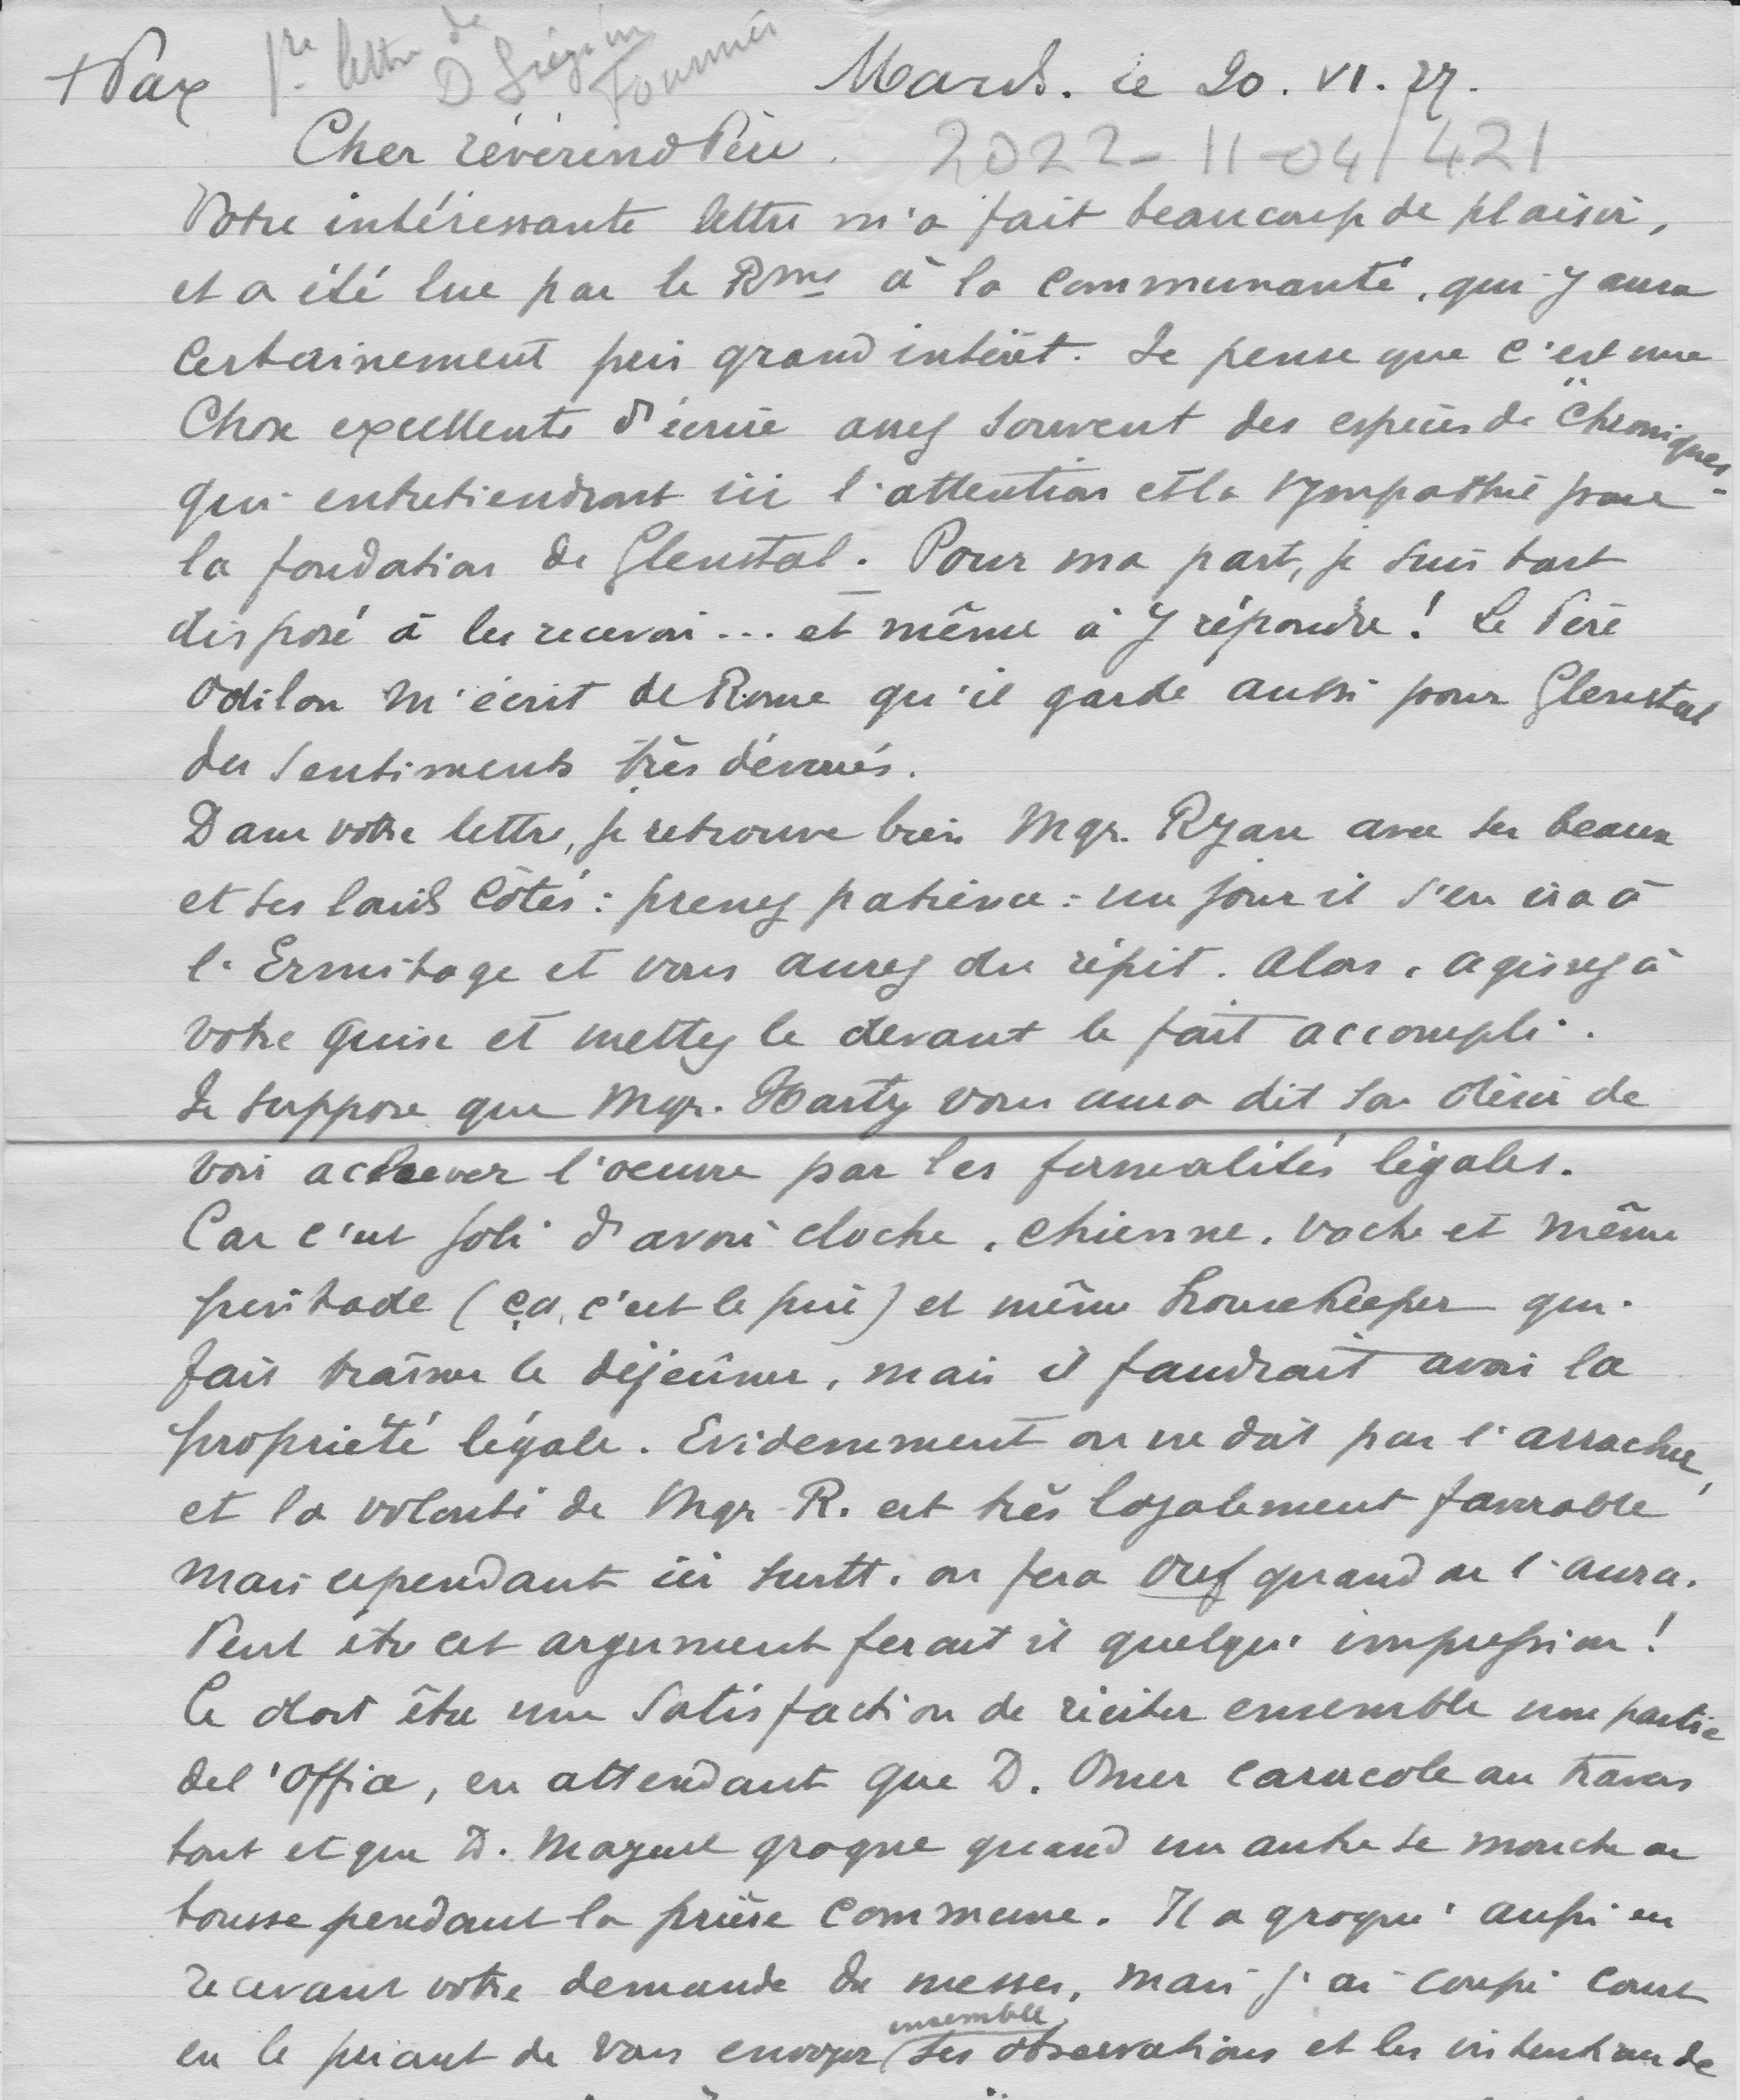 + Pax
1re lettre de
D
Mards. ce 20. VI. 27.
Cher révérend Père.
2022-11-04/421
Votre intéressante lettre m'a fait beaucoup de plaisir,
et a été lue par le Rme à la communauté, qui y aura
certainement pris grand intérêt. Je pense que c'est une
chose excellente d'écrire assez souvent des espèces de "chroniques"
qui entretiendront ici l'attention et la sympathie pour
la fondation de Glenstal. Pour ma part, je suis tout
disposé à les recevoir... et même à y répondre! Le Père
Odilon m'écrit de Rome qu'il garde aussi pour Glenstal
des sentiments très dévoués.
Dans votre lettre, je retrouve bien Mgr. Ryan avec ses beaux
et ses laids côtés: prenez patience: un jour il s'en ira à
l'Ermitage et vous aurez du répit. Alors, agissez à
votre guise et mettez le devant le fait accompli.
Je suppose que Mgr. Harty vous aura dit son désir de
voir achever l'oeuvre par les formalités légales.
Car c'est joli d'avoir cloche, chienne, vache et même
(ça, c'est le pire) et même housekeeper qui
fait traîner le déjeûner, mais il faudrait avoir la
propriété légale. Evidemment on ne doit pas l'arracher,
et la volonté de Mgr R. est très loyalement favorable
mais cependant ici surtt. on fera ouf quand on l'aura.
Peut être cet argument ferait il quelque impression!
Ce doit être une satisfaction de réciter ensemble une partie
de l'Office, en attendant que D. Omer caracole au travers
tout et que D. Mayeul grogne quand un autre se mouche ou
tousse pendant la prière commune. Il a grogné aussi en
recevant votre demande de messes, mais j'ai coupé court
en le priant de vous envoyer ensemble ses observations et les intentions de